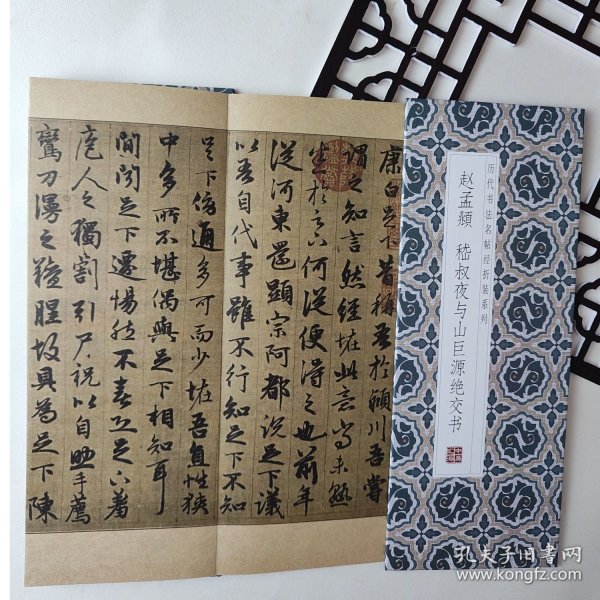 康白足下昔稱吾於潁川吾嘗
謂之知言然經怪此意尚未熟
悉於足下何從便得之也前年
從河東還顯宗阿都說足下議
以吾自代事雖不行知足下不知
足下傍通多可而少怪吾直性狹
中多所不堪偶與足下相知耳
間聞足下遷惕然不喜恐足下羞
庖人之獨割引尸祝以自助手薦
鸞刀漫之羶腥故具為足下陳
历代书法名帖经折装系列
赵孟頫 嵇叔夜与山巨源绝交书
孔夫子旧书网
www.kongfz.com